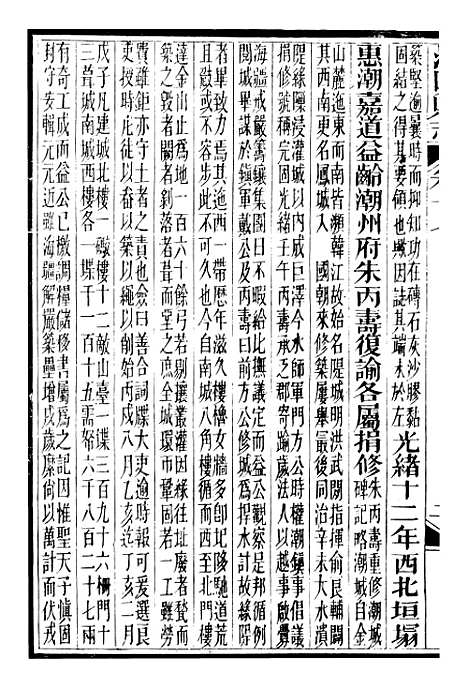 築堅逾曩時而抑知功在磚石灰沙膠黏
固結之得其要領也歟因誌其端末於左光緒十二年西北垣塌
惠潮嘉道益齡潮州府朱丙壽復諭各屬捐修朱丙壽重修潮城
碑記略潮城自金
山麓迤東而南皆瀕韓江故始名隄城明洪武間指揮俞良輔闢
其西南更名鳳城入 國朝來修築屢舉最後同治辛未大水潰
隄緣隍浸灌城以內咸巨澤今水師軍門方公時權潮鎮事啟釁
捐修號稱完固光緒壬午丙壽承乏郡寄踰歲法人以越事啟釁
海疆戒嚴籌鑲集團日不暇給比撫議定而益公觀察是邦循例
閱城畢謀於鎮軍戴公及丙壽曰前方公修城為捍水計故緣隄
者畢致力焉其迤西一帶歷年滋久樓櫓女牆多卽圮陊馳道荒
且㱩或不支此不可久也自南城八角樓循西城樓以北
達金山止為地一百六十餘弓若剔攘叢灌因緣往址廢者甃而
築之斁者闢者剗落者葺而堂之庶全城環市鞏固者乎工雖勞
費雖鉅亦守土者之責也僉曰善合詞牒大吏逾時報可爰選良
吏授時庀徒以舂以築以繩以削始丙戌八月乙亥迄丁亥二月
戊子凡建城北樓一礮樓十二敵山臺一堞三百九十六柵門十
三葺城南城西樓各一堞千一百十五需帑六千八百二十七兩
有奇工成而益公已檄調糧儲修書屬為之記因惟聖天子愼固
封守安輯元元近雖海疆解嚴築壘增戍歲糜尚以萬計而伏戎